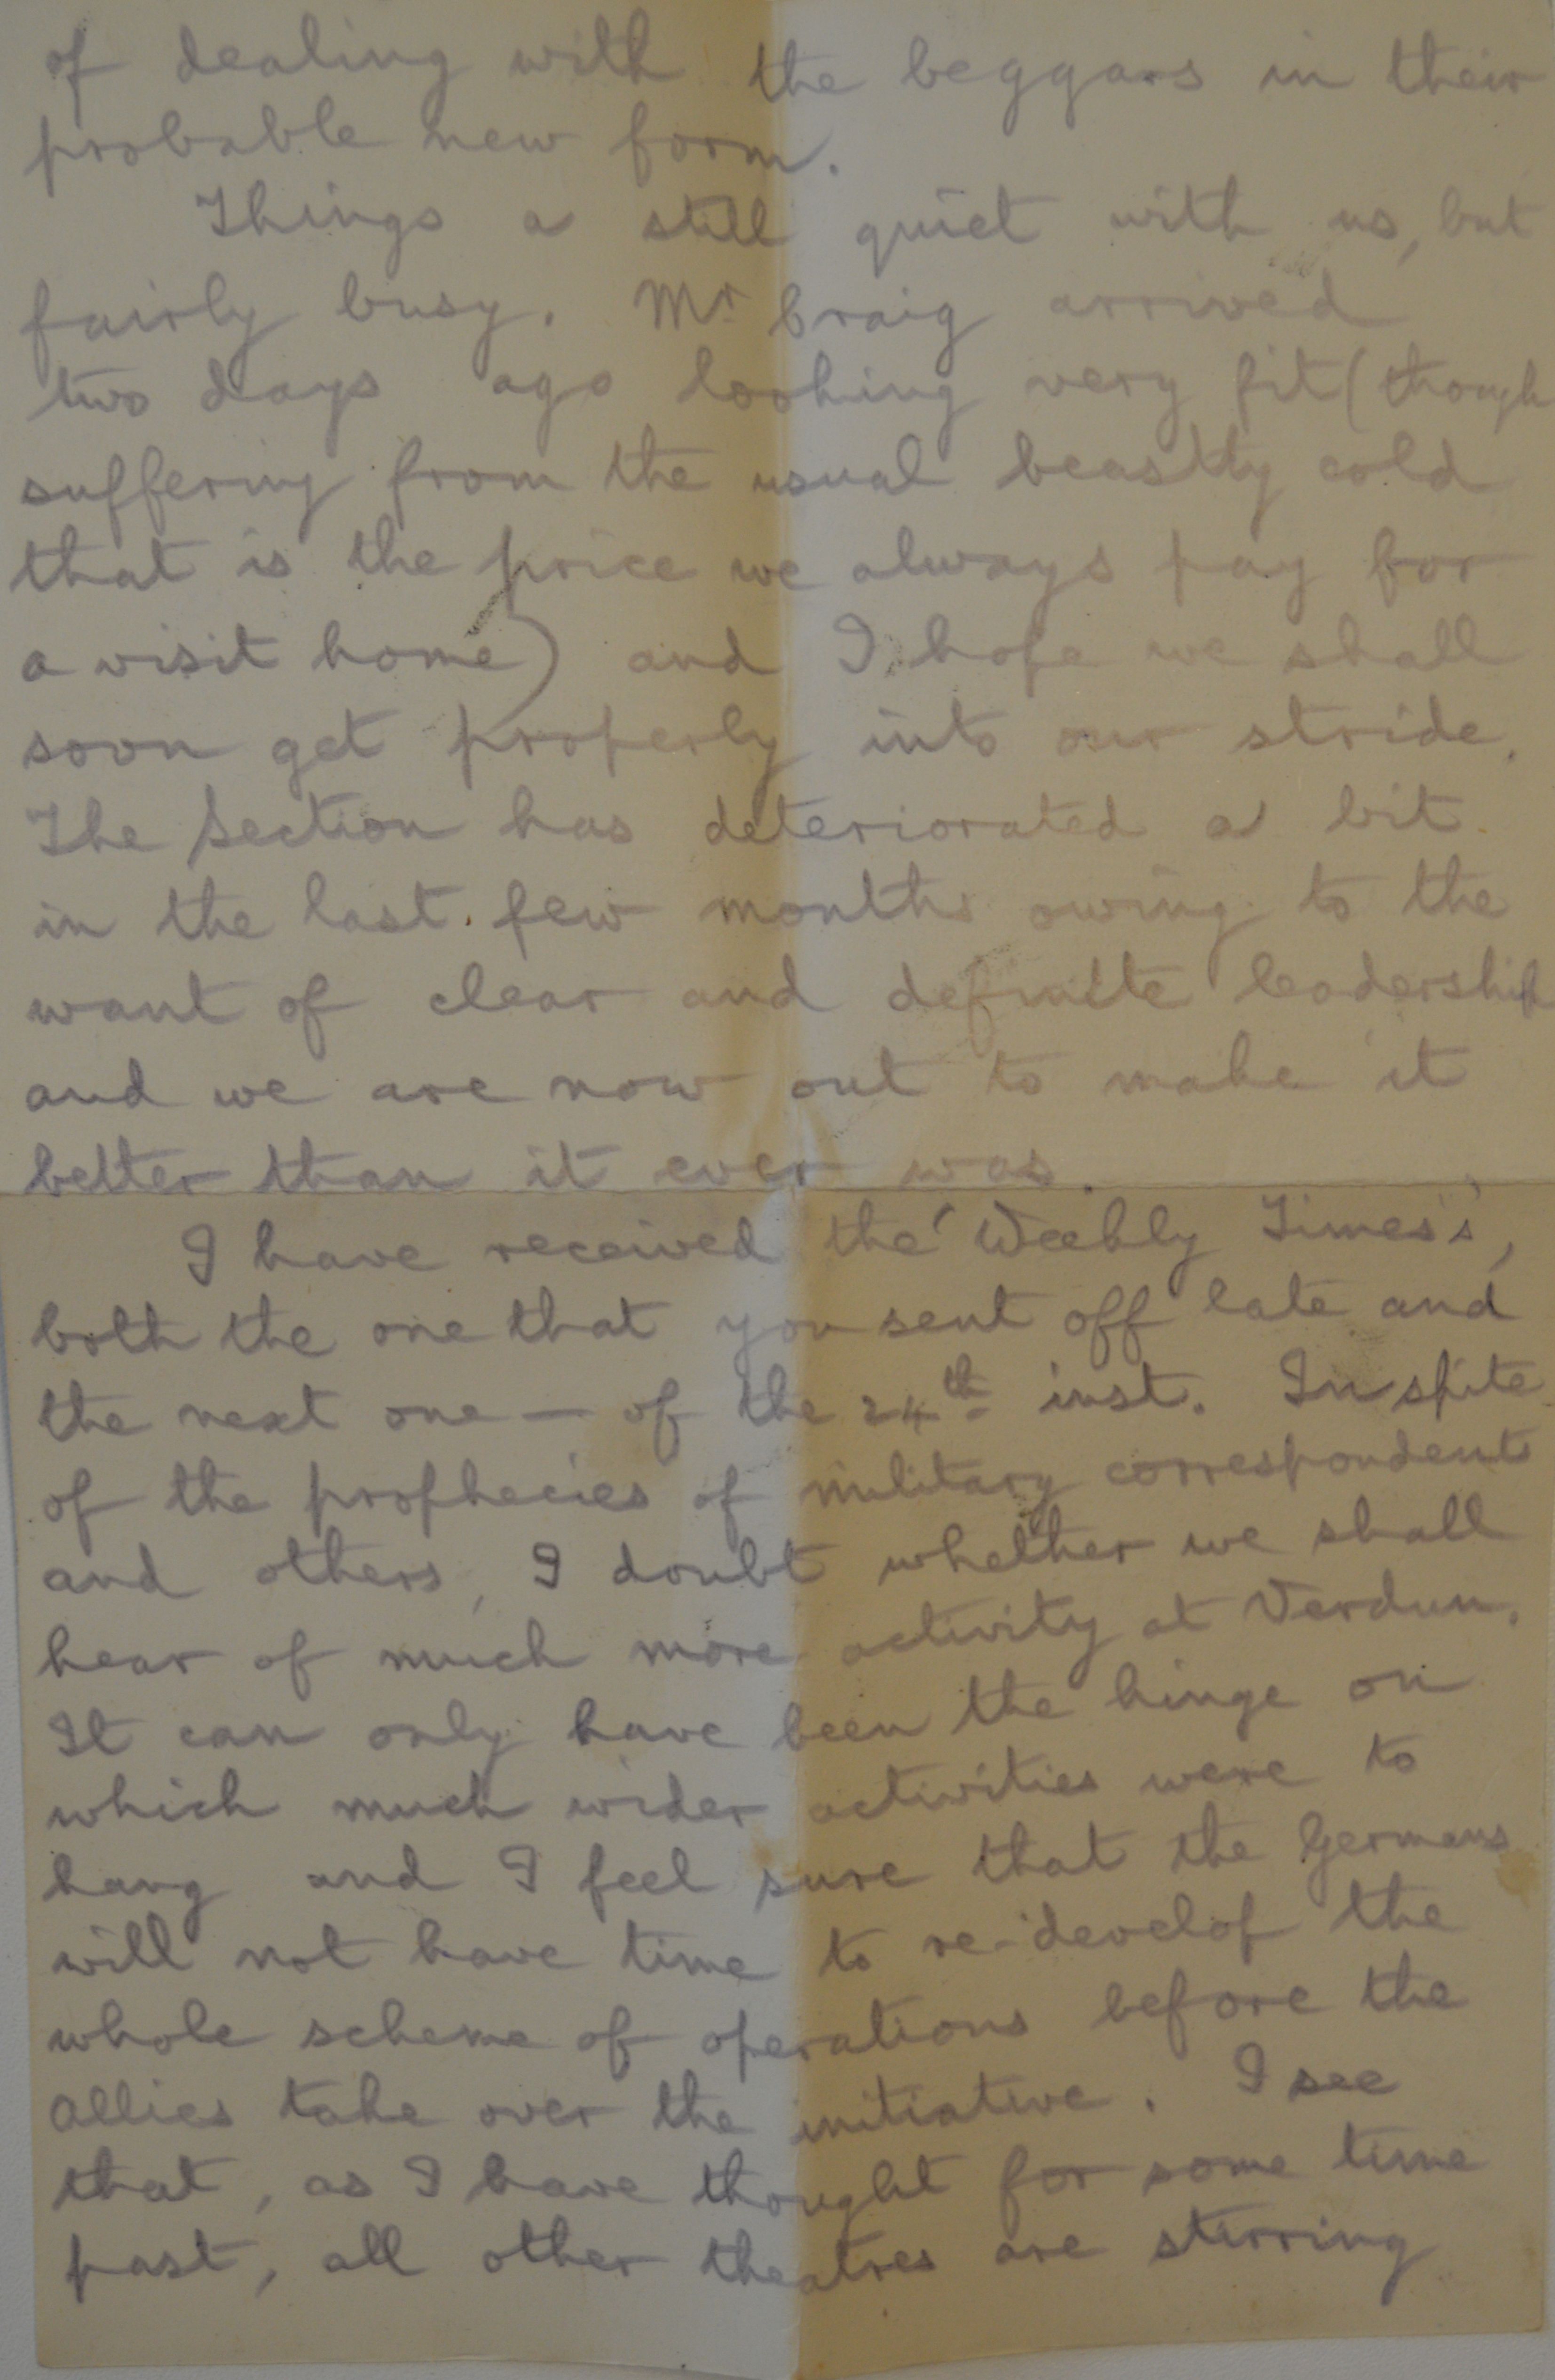 of dealing with the beggars in their
probable new form.
Things a still quiet with us, but
fairly busy. Mr. Craig arrived
two days ago looking very fit (though
suffering from the usual beastly cold
that is the price we always pay for
a visit home) and I hope we shall
soon get properly into our stride.
The Section has deteriorated a bit
in the last few months owing to the
want of clear and definite leadership
and we are now out to make it
better than it ever was.
I have received the 'Weekly Times's',
both the one that you sent off late and
the next one — of the 24th inst. In spite
of the prophecies of military correspondents
and others, I doubt whether we shall
hear of much more activity at Verdun.
It can only have been the hinge on
which much wider activities were to
hang and I feel sure that the Germans
will not have time to re-develop the
whole scheme of operations before the
Allies take over the initiative. I see
that, as I have thought for some time
past, all other theatres are stirring